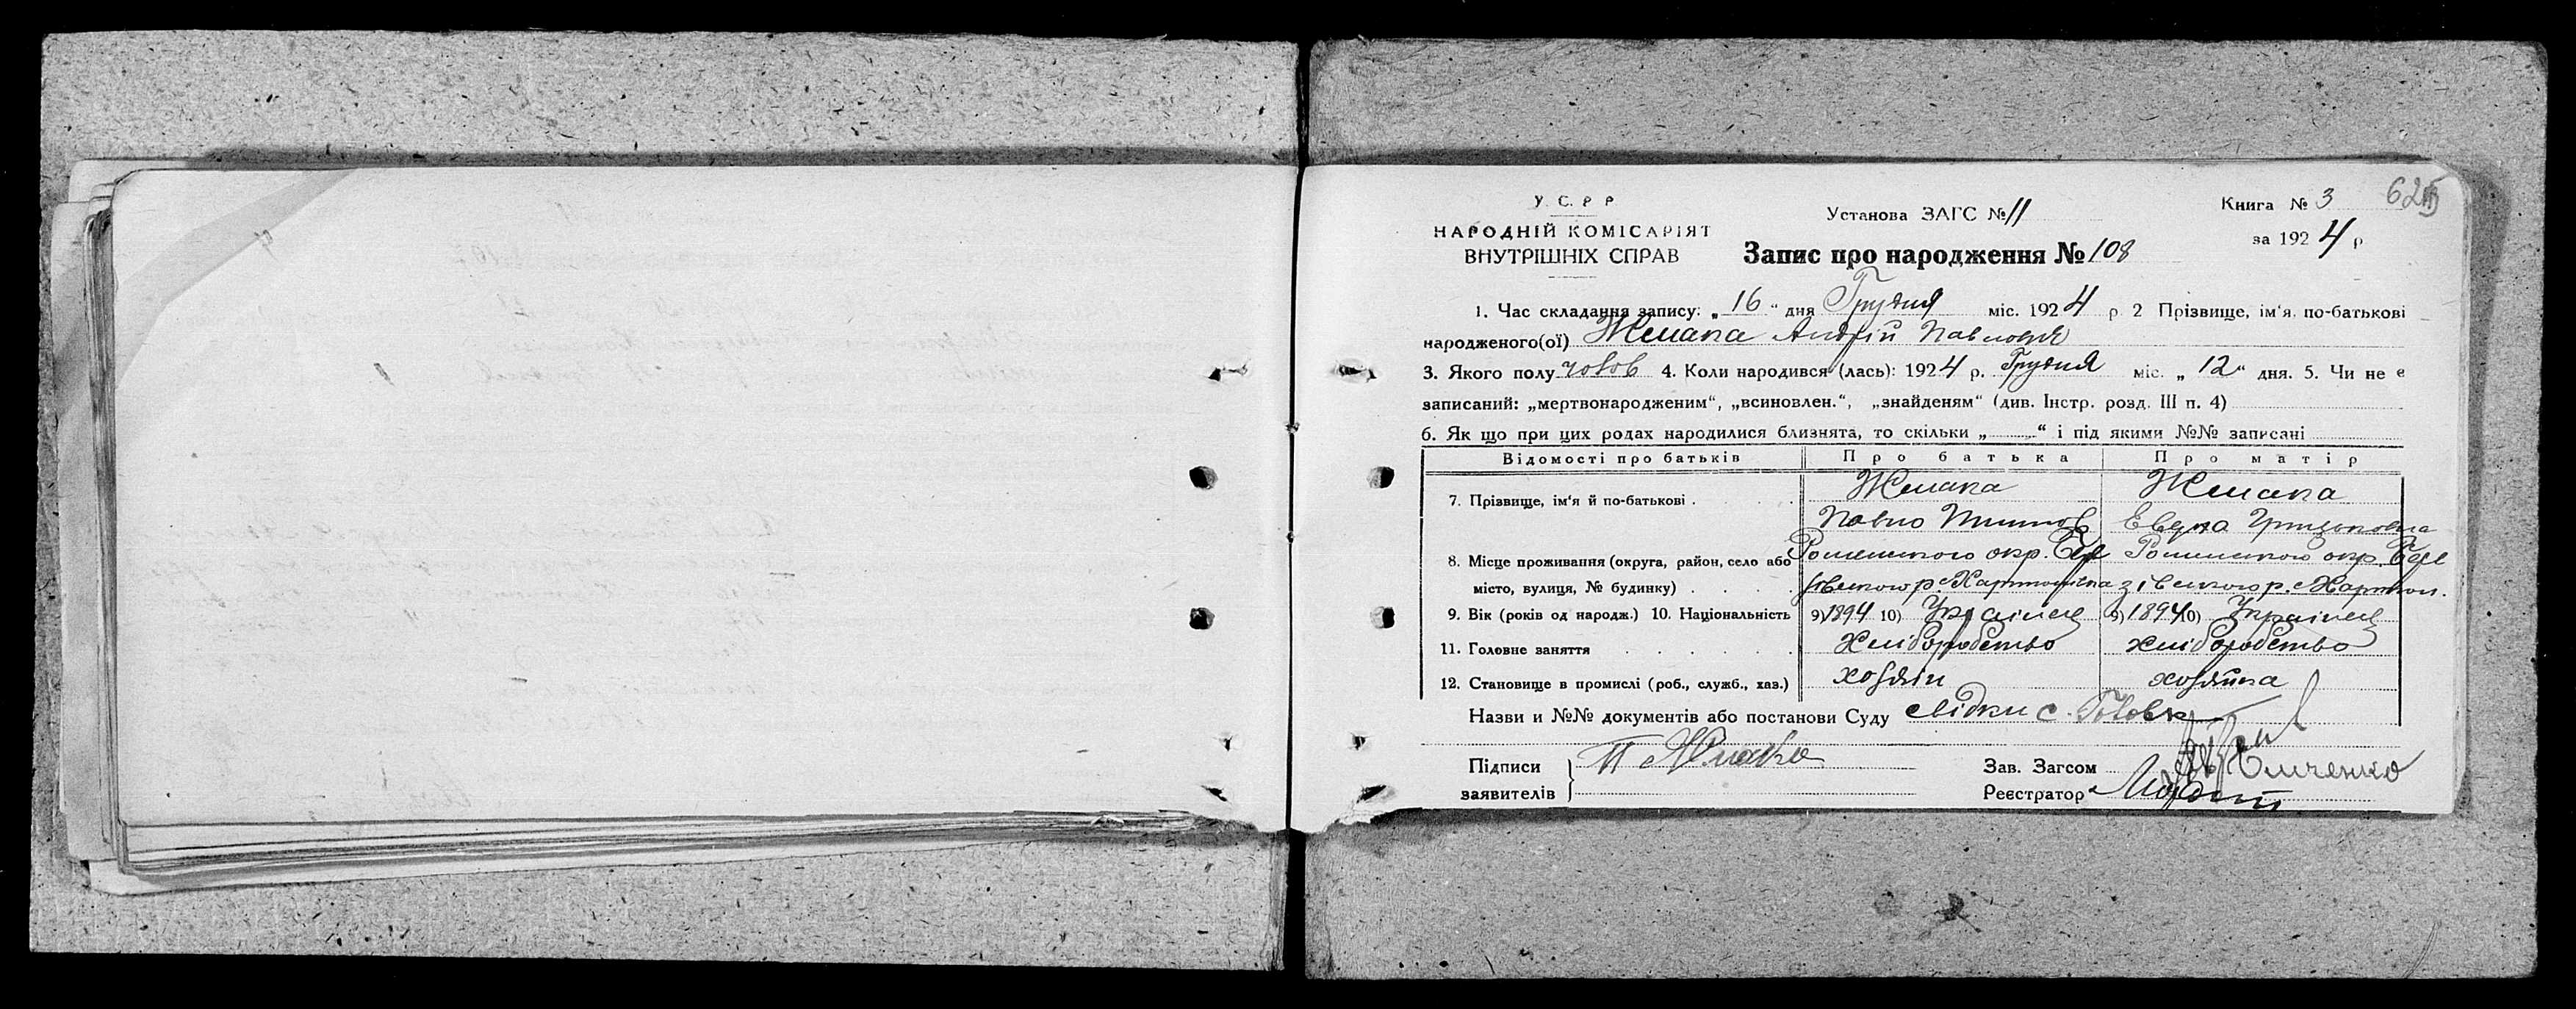 У. С. Р. Р.
НАРОДНІЙ КОМІСАРІЯТ
ВНУТРІШНІХ СПРАВ
Установа ЗАГС № 11
Запис про народження № 108
Книга № 3
за 1924 р
1. Час складання запису: „16“ дня Грудня міс. 1924 р 2 Прізвище, ім'я, по-батькові
народженого(ої) Жмака Андрій Павлович
3. Якого полу чолов 4. Коли народився (лась): 1924 р. Грудня міс. „12“ дня. 5. Чи не є
записаний: „мертвонародженим“, „всиновлен.“, „знайденям“ (див. Інстр. розд. III п. 4)
6. Як що при цих родах народилися близнята, то скільки „ “ і під якими №№ записані
Відомості про батьків Про батька Про матір
7. Прізвище, ім'я й по-батькові . Жмака Жмака
Павло
8. Місце проживання (округа, район, село або Роменського окр. Роменського окр.
місто, вулиця, № будинку)
9. Вік (років од народж.) 10. Національність 9) 1894 10) Українец 9) 1894 10) Українец
11. Головне заняття Хліборобство хліборобство
12. Становище в промислі (роб., служб., хаз.) хозяін хозяйка
Назви и №№ документів або постанови Суду свідки с.
Підписи
заявителів П Жмака
Зав. Загсом
Реєстратор